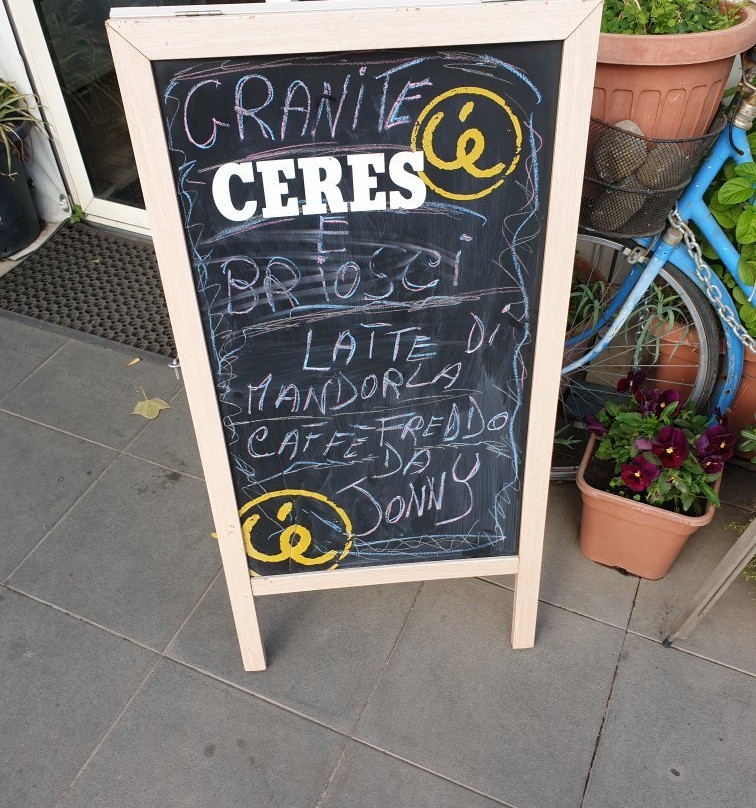 GRANITE
CERES
E
BRIOSCI
LATTE DI
MANDORLA
CAFFE FREDDO
DA
JONNY